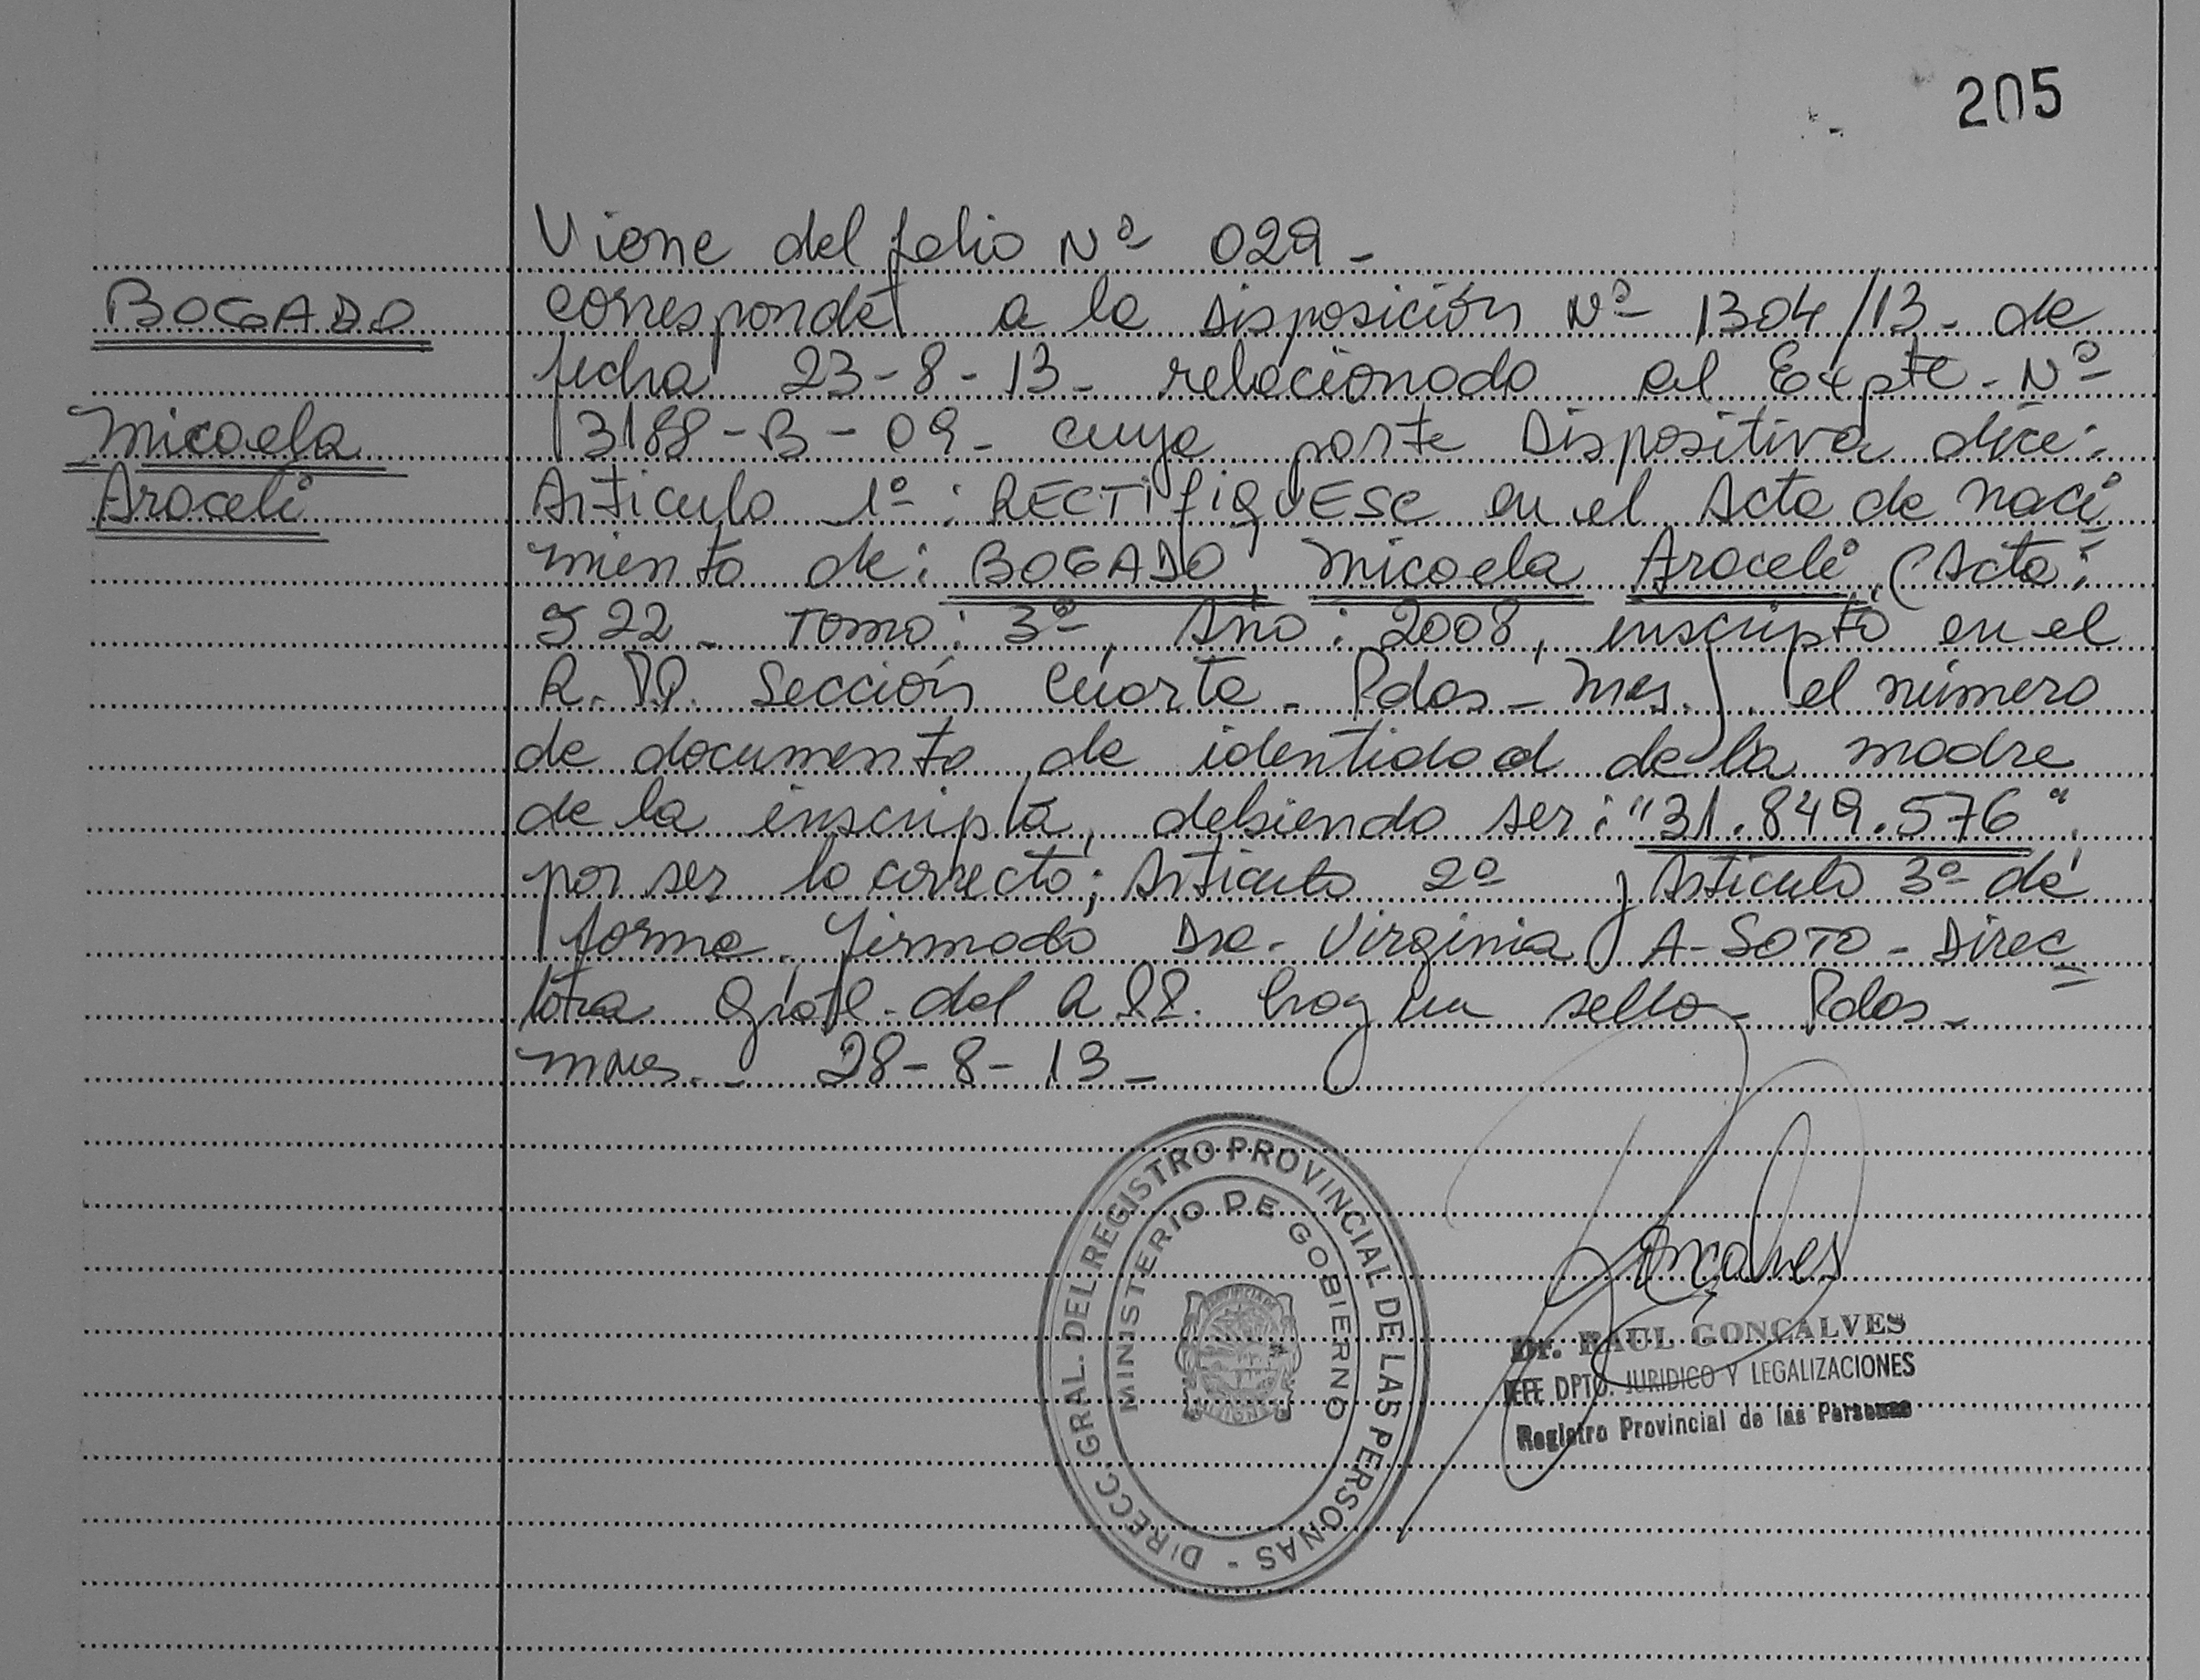 205
Viene del folio Nº 029-
BOGADO
corresponde a la Disposición Nº 1304/13- de
fecha 23-8-13- relacionado al Expte- Nº
Micaela
13188-B-09- cuya parte Dispositiva dice:
Araceli
Articulo 1º: RECTIFIQUESE en el Acta de naci
miento de: BOGADO, Micaela Araceli, (Acta:
522- Tomo: 3º, Año: 2008, inscripta en el
R.P.P. Sección Cuarta- Pdas- Mnes.) el número
de documento de identidad de la madre
de la inscripta, debiendo ser: "31.849.576"
por ser lo correcto; Articulo 2º y Articulo 3º de
forma. firmado Dra. Virginia A- SOTO- Direc
tora Gral. del R.P.P. hay un sello- Pdas-
mnes.- 28-8-13-
DIRECC. GRAL. DEL REGISTRO PROVINCIAL DE LAS PERSONAS -
MINISTERIO DE GOBIERNO
PROVINCIA DE
MISIONES
Dr. RAUL GONÇALVES
JEFE DPTO. JURIDICO Y LEGALIZACIONES
Registro Provincial de las Personas